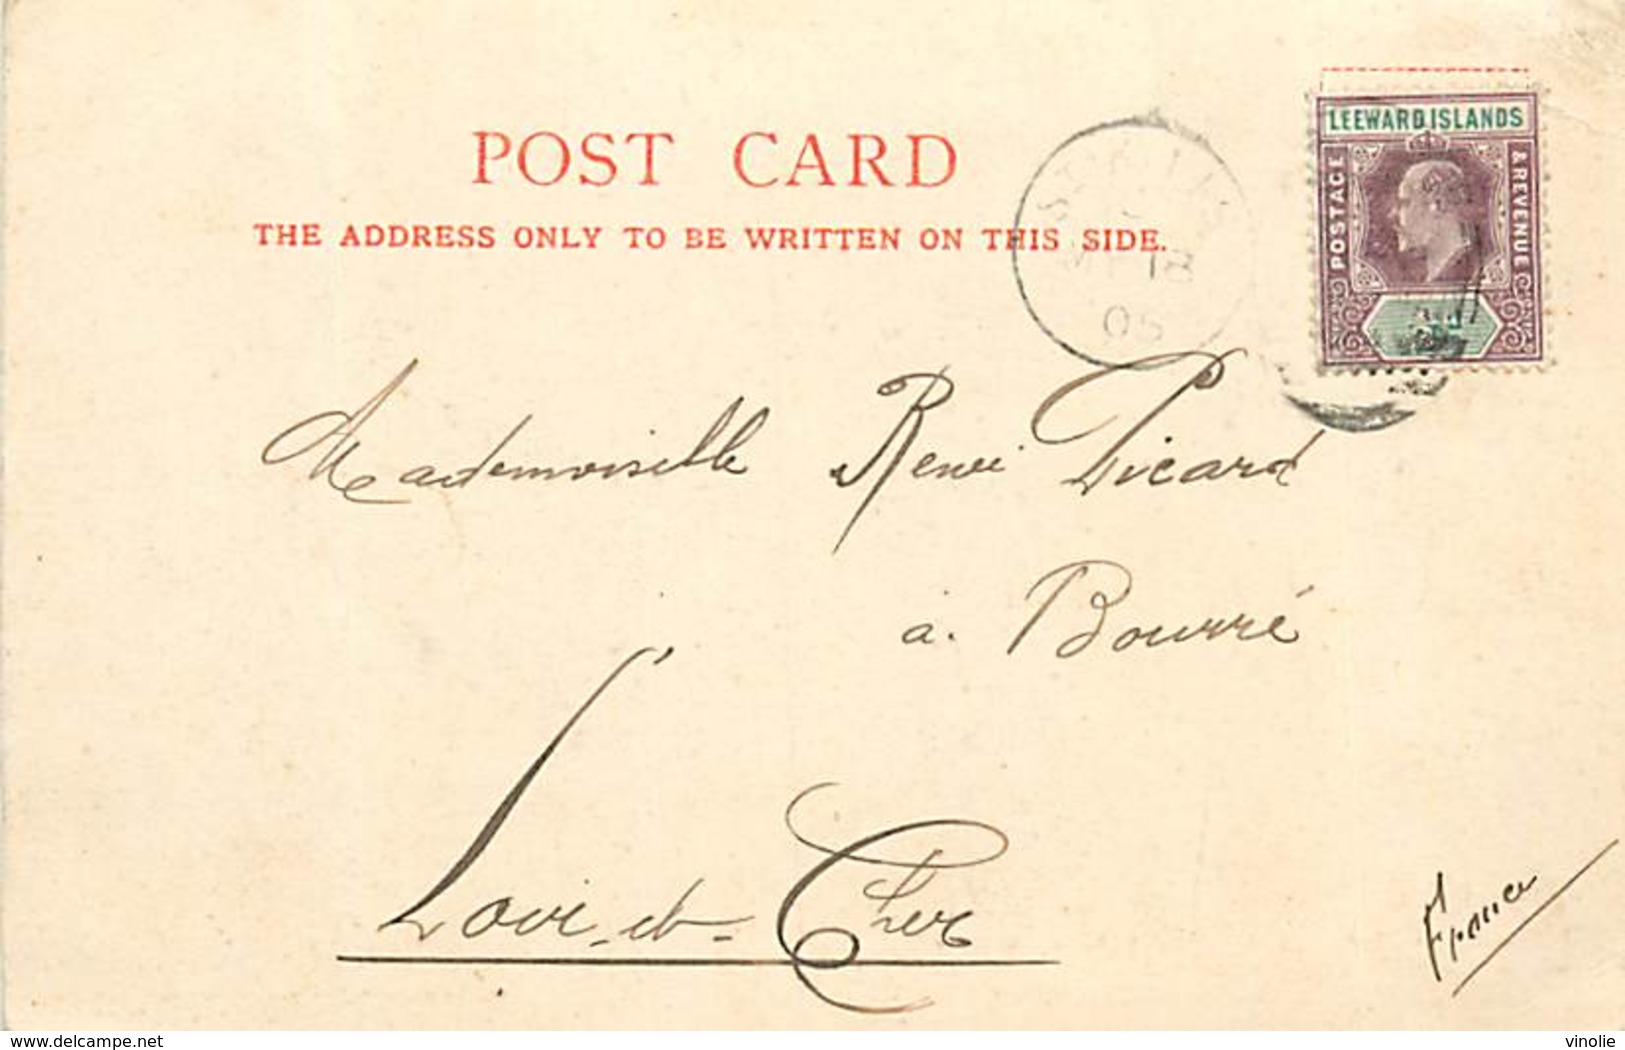 POST CARD
THE ADDRESS ONLY TO BE WRITTEN ON THIS SIDE.
LEEWARD ISLANDS
POSTAGE
& REVENUE
18
05
Mademoiselle Renée Picard
à. Bourré
Loir-et-Cher
France
delcampe.net
vinolie